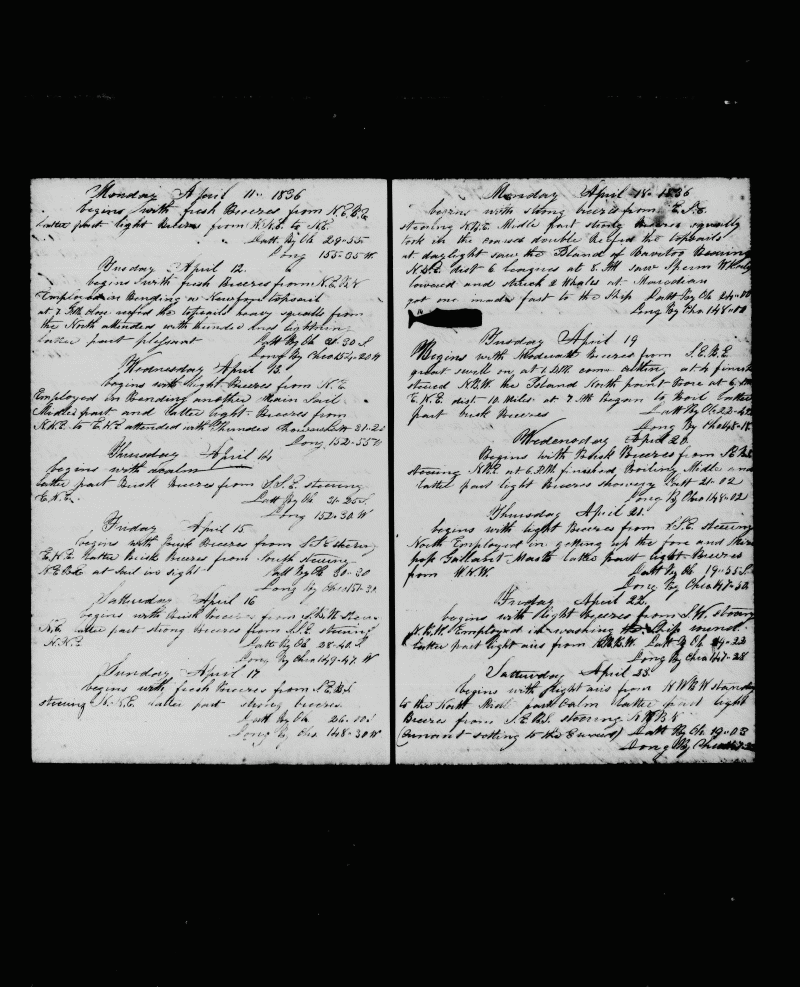 Monday April 11th 1836
begins with fresh Breezes from N.E.B.E
latter part light Breezes from N.N.E. to N.E.
Latt By Ob 29-55
Long 155-05 W
Tusday April 12.
begins with fresh Breezes from N.E.B.N
Employed in Bending a New fore topsail
at 7 reefed the topsails heavy squalls from
the North attended with thunder and lightning
latter part plesant Latt By Ob 31-30 S
Long By Chro 154-20 W
Wednesday April 13
begins with light Breezes from N.E
Employed in Bending another Main Sail
Midle part and latter light Breezes from
N.N.E to E.N.E attended with thunder 31-20
Long 152-55 W
Thursday April 14
begins with calm
latter part Brisk Breezes from S.S.E. steering
E.N.E. Latt By Ob 31-25 S
Long 152-30 W
Friday April 15
begins with Brisk Breezes from S.S.E steering
E.N.E latter Brisk Breezes from South steering
N.E.B.E at Sail in sight Latt By Ob 30-30
Long By Chro 151-30
Satturday April 16
begins with Brisk Breezes from S.S.W Steering
N.E. latter part strong Breezes from S.S.E steering
N.N.E Latt By Ob 28-40 S
Long By Chro 149-47 W
Sunday April 17
begins with fresh Breezes from S.E.B.S
steering N.N.E. latter part strong breezes
Latt By Ob 26-00 S
Long By Chro 148-30 W
Monday April 18th 1836
begins with strong breezes from E.S.E.
steering N.N.E. Midle part strong Breezes squally
took in the coarses double Refed the topsails
at daylight saw the Island of Bearing
dist 6 leagues at 8 saw Sperm Whales
lowered and struck 2 Whales at Maradian
got one made fast to the Ship Latt By Ob 24-00
Long By Chro 148-00
Tusday April 19
Begins with Moderate Breezes from S.E.B.E
great swell on at 1 com cutting at 4 finished
steered N.B.W. the Island North point bore at 6
E.N.E. dist 10 Miles at 7 Began to Boil latter
part brisk Breezes Latt By Ob 22-42
Long By Chro 148-18
Wedensday April 20
Begins with Brisk Breezes from
steering at 6 finished Boiling Midle and
latter part light Breezes showery Latt 21-02
Long By Chro 148-02
Thursday April 21
begins with light Breezes from S.S.E. steering
North Employed in getting up the fore and
Gallant Masts latter part light Breezes
from W.N.W. Latt By Ob 19-55 S
Long By Chro
Friday April 22
begins with light Breezes from S.W. steering
N.N.W. Employed in washing Ship round
latter part light airs from Latt By Ob
Long By Chro 147-28
Satturday April 23
begins with light airs from N.W.B.W standing
to the North Midl part calm latter part light
Breezes from S.E.B.S. steering N.W.B.N
(currant setting to the Eurus) Latt By Ob 19-03
Long By Chro